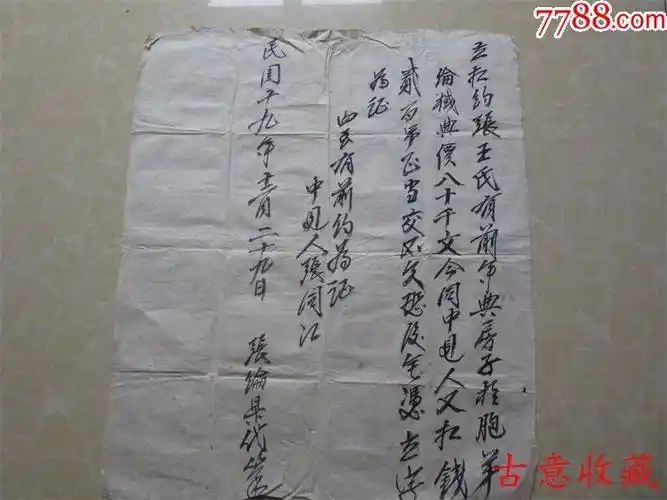 立找约張王氏有前年典房子於胞弟
綸 典價八十千文今同中見人又找錢
貳百吊正当交不欠恐后無憑立字
為证
四至有前约為证
中見人張同江
民国十九年十二月二十九日
張綸 代筆
7788.com
古意收藏